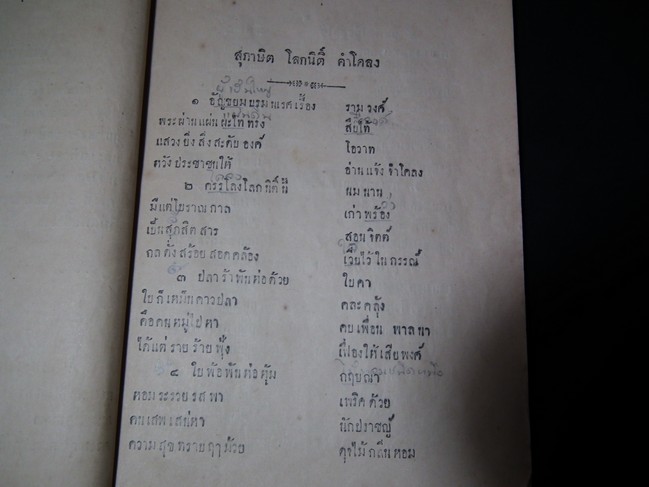 สุภาษิต โลกนิติ์ คำโคลง
๑ อัญขยมบรมนเรศเรื้อง รามวงศ์
พระผ่านแผ่นผะไท ทรง สืบไท้
แสวงยิ่งสิ่งสะดับ องค์ โอวาท
หวังประชาชนให้ อ่านแจ้งจำโคลง
๒ ครรโลงโลกนิติ์นี้ นมนาน
มีแต่โบราณกาล เก่าพร้อง
เป็นสุภสิตสาร สอนจิตต์
กลดั่งสร้อยสอดคล้อง เวี่ยไว้ในกรรณ์
๓ ปลาร้าพันห่อด้วย ใบคา
ใบก็เหม็นคาวปลา คละคลุ้ง
คือคนหมู่ไปหา คบเพื่อน พาลนา
ได้แต่ร้ายร้ายฟุ้ง เฟื่องให้เสียพงศ์
๔ ใบพ้อพันห่อหุ้ม กฤษณา
หอมระรวยรสพา เพริศด้วย
คนเสพเสน่หา นักปราชญ์
ความสุขทรายฤๅม้วย ดุจไม้กลิ่นหอม